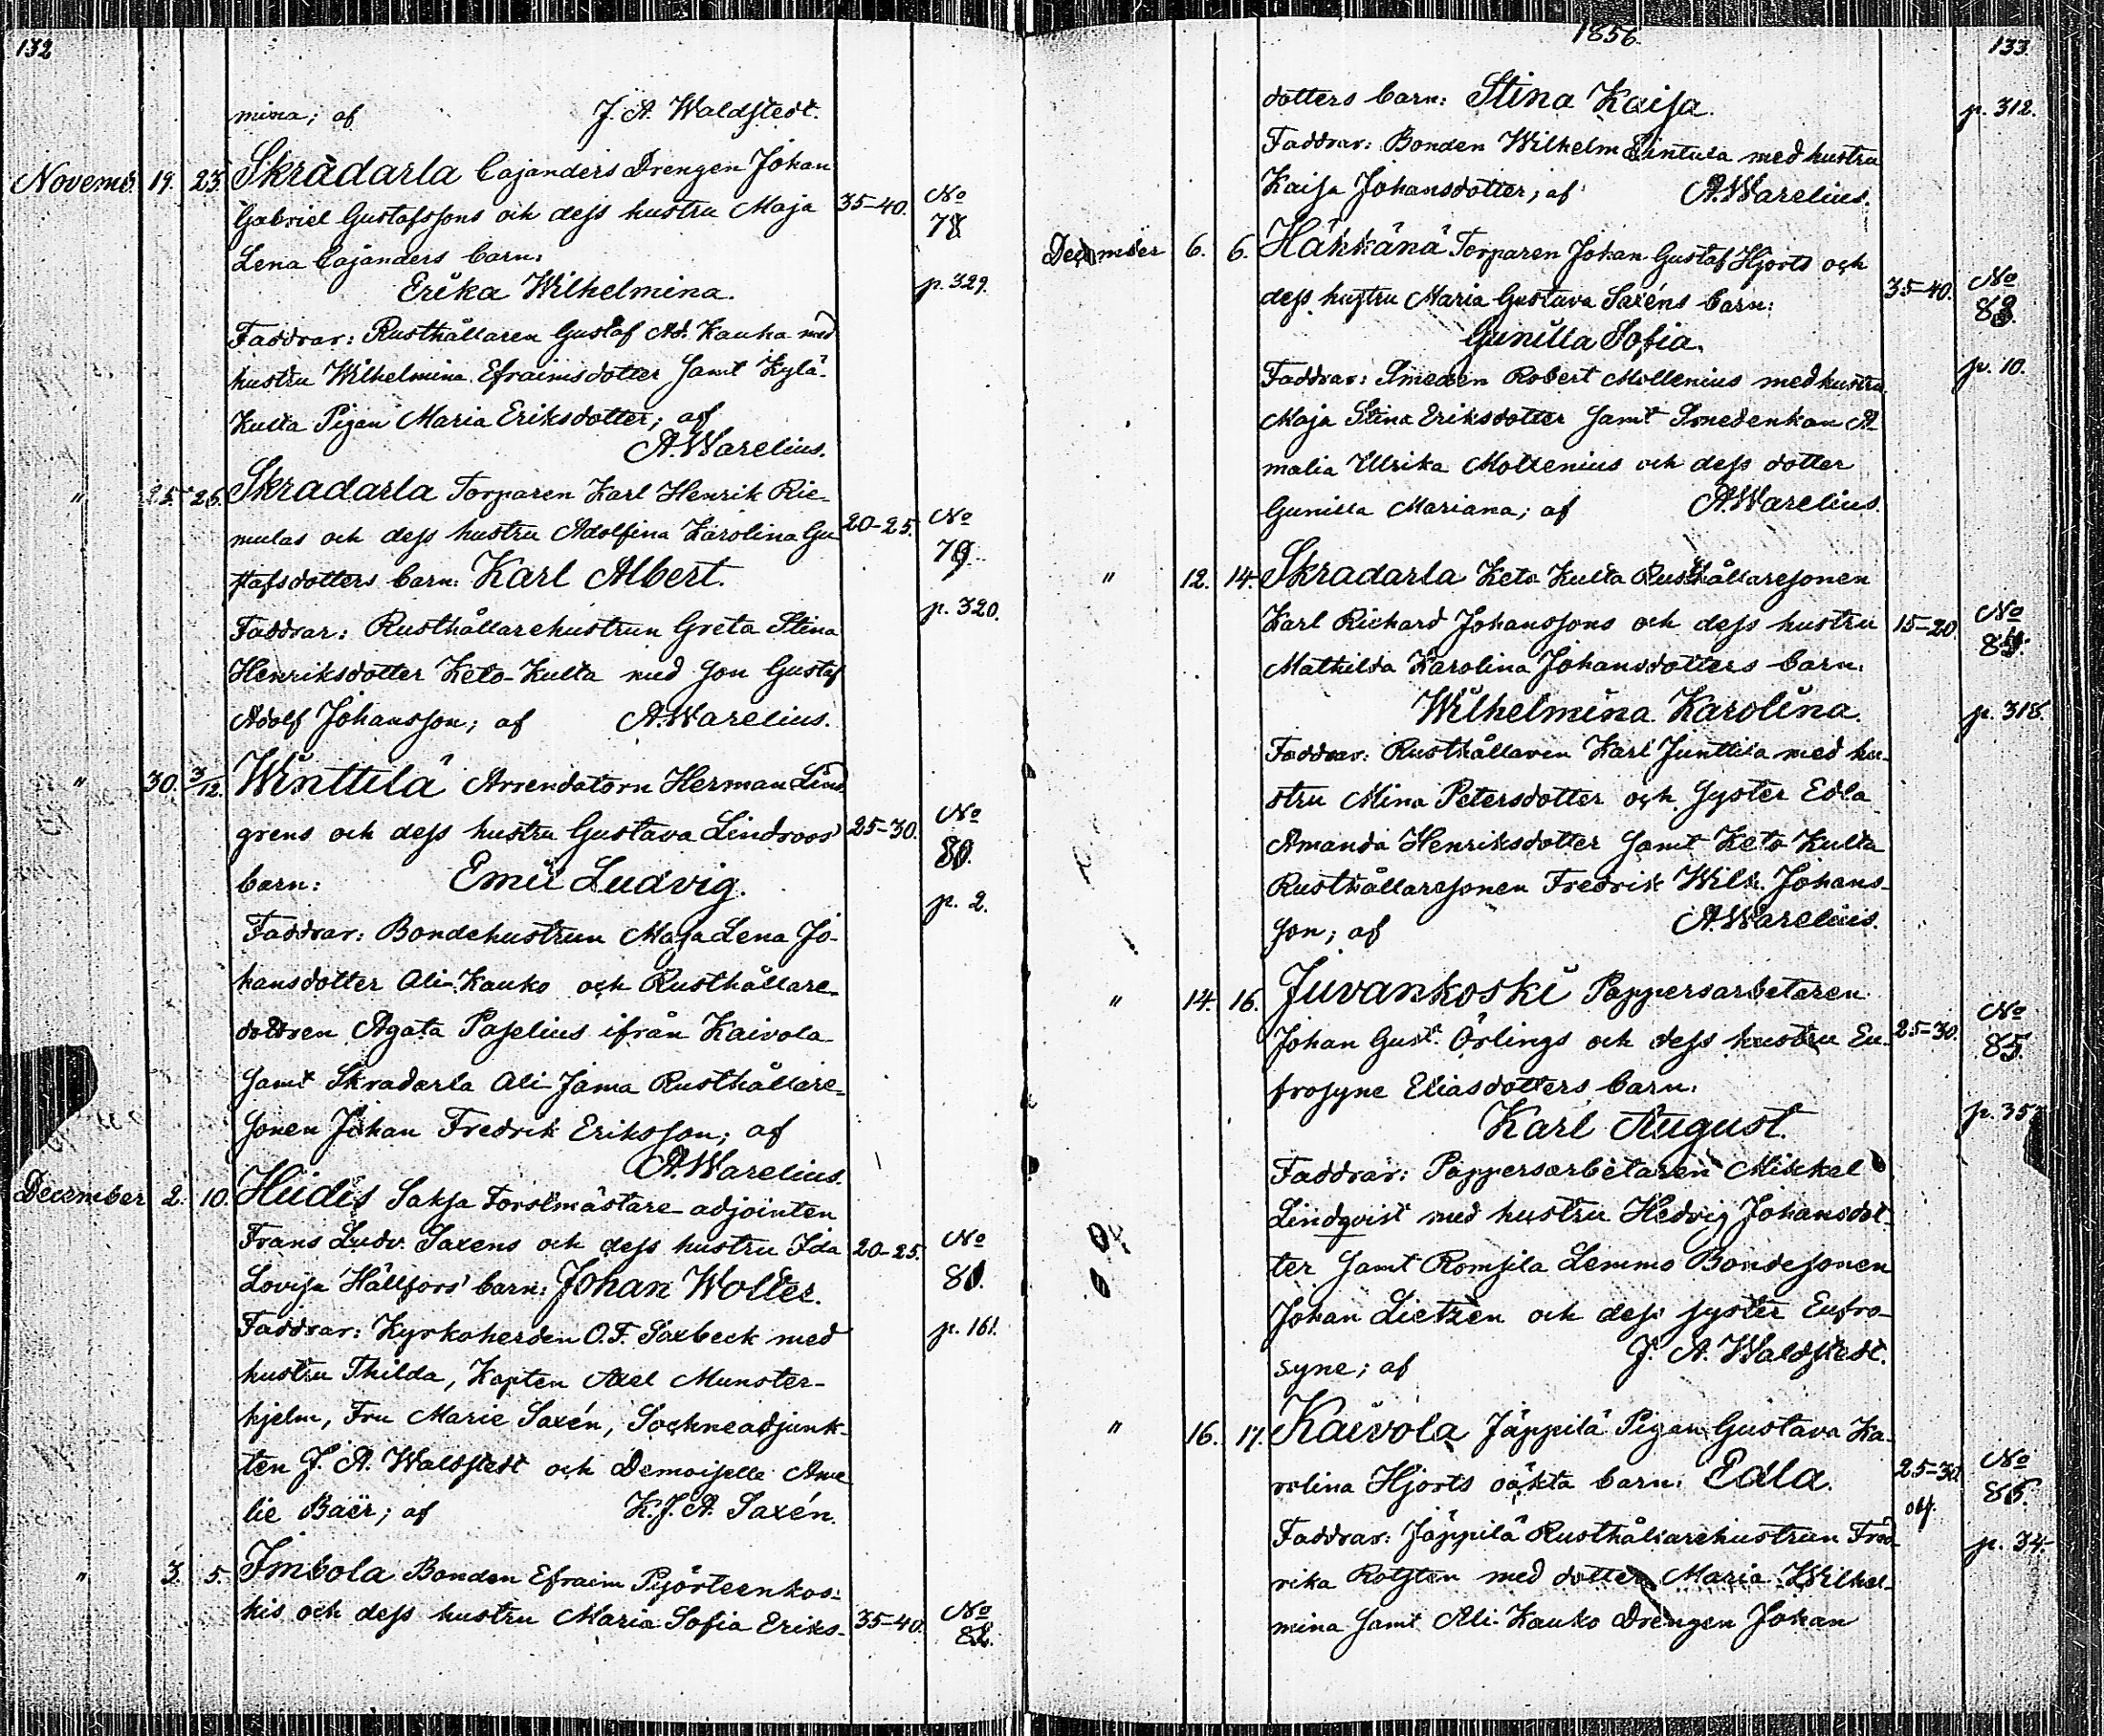 132
mina; af J. A. Waldstedt.
Novemb. 19. 23. Skradarla Cajanders Drengen Johan
Gabriel Gustafssons och dess hustru Maja 35-40. No
78
Lena Cajanders barn:
Erika Wilhelmina. p. 329.
Faddrar: Rusthållaren Gustaf Ad. Kauha med
hustru Wilhelmina Efraimsdotter samt Kylä-
Kulta Pigan Maria Eriksdotter; af
A. Warelius.
" 25. 26. Skradarla Torparen Karl Henrik Rie-
mulas och dess hustru Adolfina Karolina Gu- 20-25. No
79.
stafsdotters barn: Karl Albert.
p. 320.
Faddrar: Rusthållarehustrun Greta Stina
Henriksdotter Keto-Kulta med son Gustaf
Adolf Johansson; af A. Warelius.
" 30. 3/12. Winttilä Arrendatorn Herman Lind
grens och dess hustru Gustava Lindroos' 25-30. No
80.
barn: Emil Ludvig.
p. 2.
Faddrar: Bondehustrun Maja Lena Jo-
hansdotter Ali-Kauko och Rusthållare-
dottren Agata Paselius ifrån Kaivola
samt Skradarla Ali-Jama Rusthållare-
sonen Johan Fredrik Eriksson; af
A. Warelius.
December 2. 10. Hiidis Saksa Forstmästare-adjointen
Frans Ludv. Saxens och dess hustru Ida 20-25. No
Lovisa Hällfors' barn: Johan Wolter. 81.
Faddrar: Kyrkoherden O. F. Saxbeck med p. 161.
hustru Thilda, Kapten Axel Munster-
hjelm, Fru Marie Saxén, Sockneadjunk-
ten J. A. Waldstedt och Demoiselle Ame
lie Baër; af K. J. A. Saxén.
" 3. 5. Imbola Bonden Efraim Pyörteenkos-
kis och dess hustru Maria Sofia Eriks- 35-40. No
82.
1856. 133.
dotters barn: Stina Kaisa. p. 312.
Faddrar: Bonden Wilhelm Lintula med hustru
Kaisa Johansdotter; af A. Warelius.
December 6. 6. Häkkänä Torparen Johan Gustaf Hjorts och
dess hustru Maria Gustava Saxéns barn: 35-40. No
83.
Gunilla Sofia.
Faddrar: Smeden Robert Mollenius med hustru p. 10.
Maja Stina Eriksdotter samt Smedenkan A-
malia Ulrika Moltenius och dess dotter
Gunilla Mariana; af A. Warelius.
" 12. 14. Skradarla Keto Kulta Rusthållaresonen
Karl Richard Johanssons och dess hustru 15-20 No
84.
Mathilda Karolina Johansdotters barn:
Wilhelmina Karolina. p. 318.
Faddrar: Rusthållaren Karl Junttila med hu-
stru Mina Petersdotter och syster Edla
Amanda Henriksdotter samt Keto Kulta
Rusthållaresonen Fredrik Wilh. Johans-
son; af A. Warelius.
" 14. 16. Juvankoski Pappersarbetaren
Johan Gust. Örlings och dess hustru Eu- 25-30. No
85.
frosyne Eliasdotters barn:
Karl August. p. 35
Faddrar: Pappersarbetaren Mikkel
Lindqvist med hustru Hedvig Johansdot-
ter samt Romsila Lemmo Bondesonen
Johan Lietzen och dess syster Eufro-
syne; af J. A. Waldstedt.
" 16. 17. Kaivola Jäppilä Pigan Gustava Ka-
rolina Hjorts oäkta barn: Edla. 25-30. No
oä. 86.
Faddrar: Jäppilä Rusthållarehustrun Fred- p. 34.
rika Rotsten med dotter Maria Wilhel-
mina samt Ali-Kauko Drengen Johan